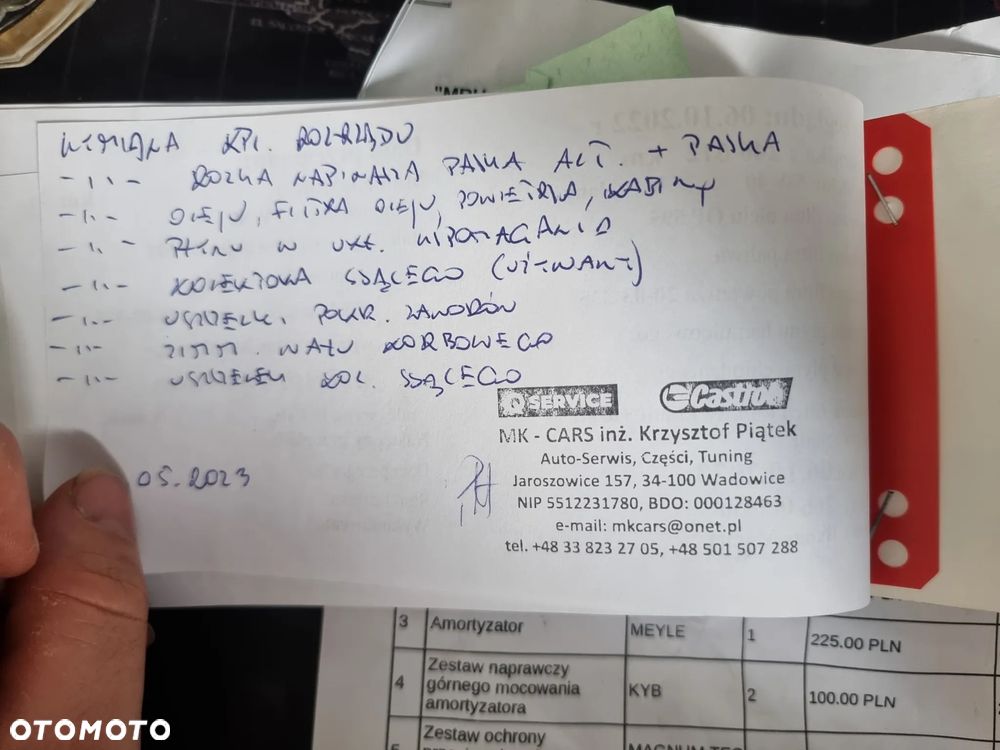 "MPU
WYMIANA KPL. ROZRZĄDU
- 11 - ROLKA NAPINACZA PASKA ALT. + PASKA
- 11 - OLEJU, FILTRA OLEJU, POWIETRZA, KABINY
- 11 - PŁYNU W UKŁ. WSPOMAGANIA
- 11 - KOLEKTORA SSĄCEGO (UŻYWANY)
- 11 - USZCZELK. POKR. ZAWORÓW
- 11 - ZIMM. WAŁU KORBOWEGO
- 11 - USZCZELEK KOL. SSĄCEGO
Q SERVICE Castrol
MK - CARS inż. Krzysztof Piątek
Auto-Serwis, Części, Tuning
Jaroszowice 157, 34-100 Wadowice
NIP 5512231780, BDO: 000128463
e-mail: mkcars@onet.pl
tel. +48 33 823 27 05, +48 501 507 288
05.2023
3 Amortyzator MEYLE 1 225.00 PLN
4 Zestaw naprawczy górnego mocowania amortyzatora KYB 2 100.00 PLN
5 Zestaw ochrony
OTOMOTO